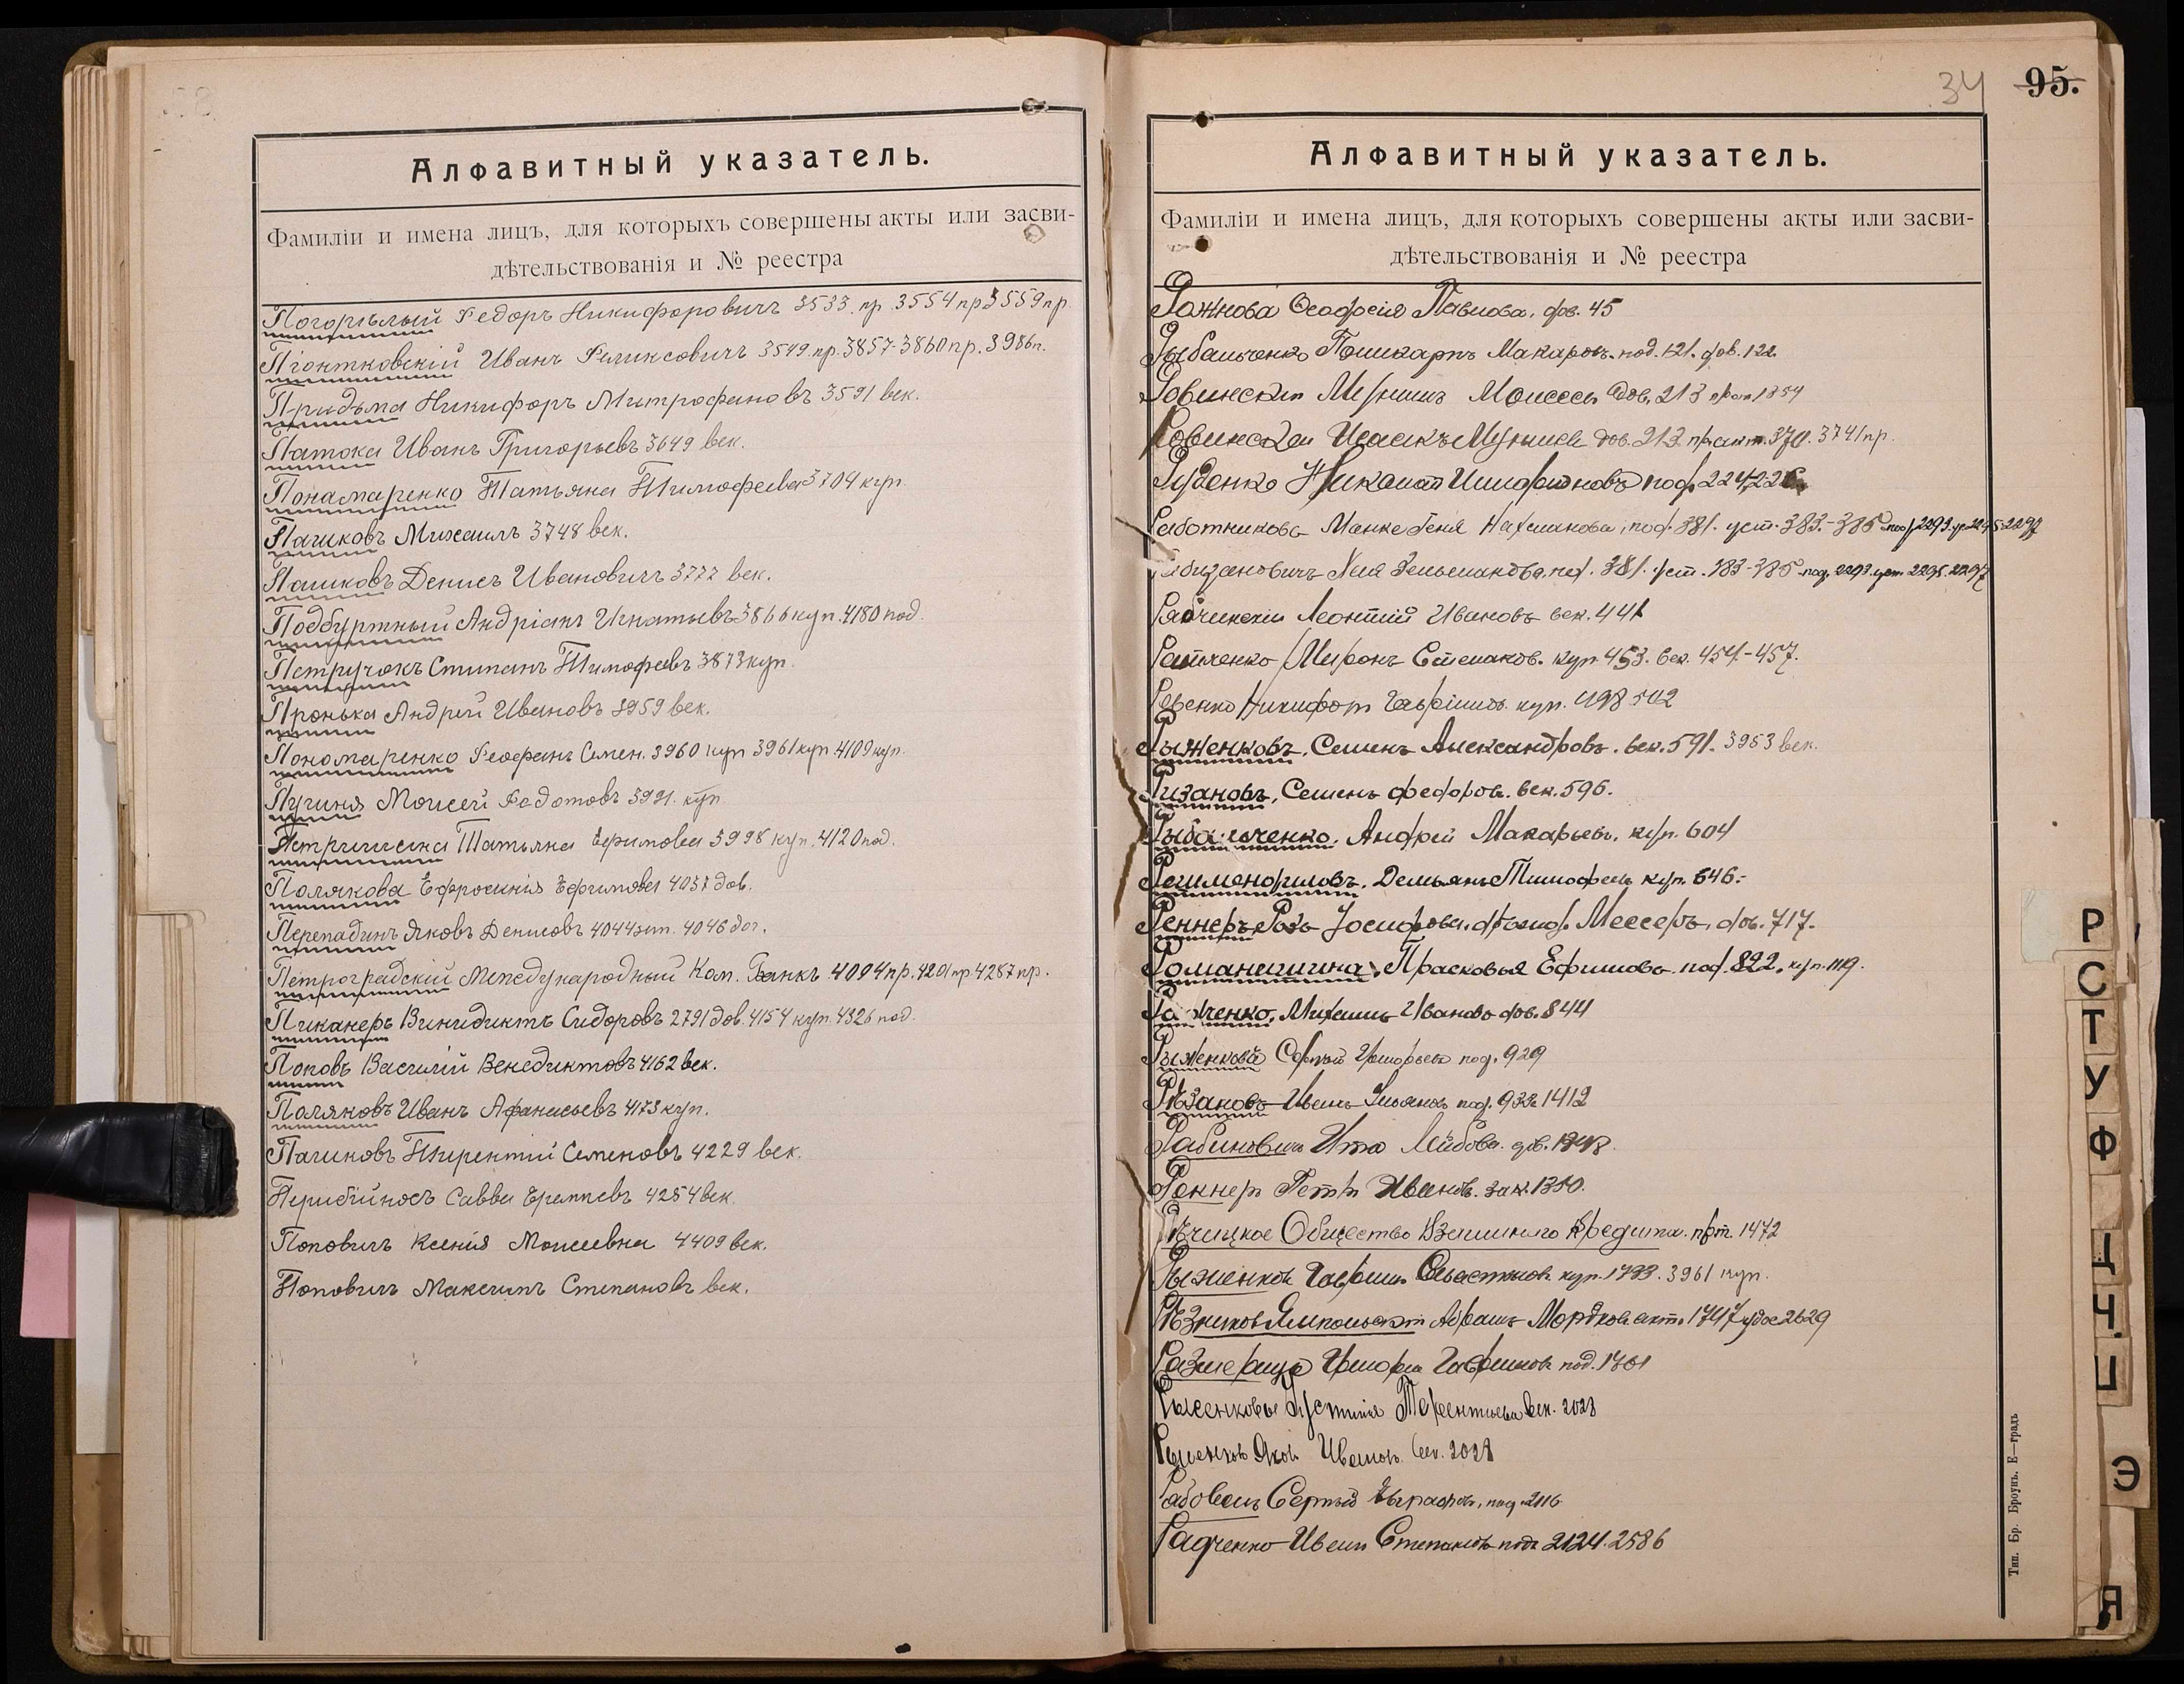 Алфавитный указатель.
Фамиліи и имена лицъ, для которыхъ совершены акты или засви-
дѣтельствованія и № реестра
Погорѣлый Федоръ Никифоровичъ 3533 пр. 3554 пр 3559 пр.
Піонтковскій Иванъ Феликсовичъ 3549 пр. 3857-3860 пр. 3986 п.
Придьма Никифоръ Митрофановъ 3591 век.
Патока Иванъ Григорьевъ 3649 век.
Понамаренко Татьяна Тимофеева 3704 куп.
Пачиковъ Михаилъ 3748 век.
Пашковъ Денисъ Ивановичъ 3772 век.
Поддуртный Андріанъ Игнатьевъ 3866 куп. 4180 под.
Петручокъ Степанъ Тимофеевъ 3873 куп.
Пронька Андрей Ивановъ 3959 век.
Пономаренко Феофанъ Семен. 3960 куп 3961 куп 4109 куп.
Пугиня Моисей Федотовъ 3991. куп
Татьяна Ефимова 3998 куп. 4120 под.
Полякова Ефросинія Ефимова 4037 дов.
Перепадинъ Яковъ Денисовъ 4044 зап. 4046 дог.
Петроградскій Международный Ком. Банкъ 4094 пр. 4201 пр 4287 пр.
Пиканеръ Винидиктъ Сидоровъ 2791 дов. 4154 куп. 4326 под.
Поповъ Василій Венедиктовъ 4162 век.
Поляковъ Иванъ Афанасьевъ 4173 куп.
Пачиковъ Тирентій Семеновъ 4229 век.
Перибійносъ Савва 4254 век.
Поповичъ Ксенія Моисеевна 4409 век.
Поповичъ Максимъ Степановъ век.
34 95.
Алфавитный указатель.
Фамиліи и имена лицъ, для которыхъ совершены акты или засви-
дѣтельствованія и № реестра
Рожнова Павлова, дов. 45
Рыбальченко Макаровъ. под. 121. дов. 122
Ровинскій Моисеев дов. 213 1354
Ровинскій Исаакъ дов. 213. 370. 3741 пр.
Руденко Николай под. 224,226
Работникова Манке Геня Нахманова, под. 381. уст. 383-385 под. 2293. ус. 2295-2297
Хая Зельманова. под. 381. уст. 383-385 под. 2293. уст. 2295. 2297
Рабчинскій Леонтій Ивановъ век. 441
Ратченко Миронъ Степанов. куп. 453. век. 454-457.
Ревенко Никифоръ Гавріиловъ куп. 498 502
Рыженковъ, Семенъ Александровъ. век. 591. 3953 век.
Ризановъ, Семенъ Федоров. век. 596.
Рыбальченко. Андрей Макарьевъ. куп. 604
Демьянъ Тимофеевъ куп. 646.
Реннеръ Розъ Іосифова, Мессеръ, дов. 717.
Романишина, Прасковья Ефимова. под. 822. куп. 1119.
Радченко, Михаилъ Ивановъ дов. 844
Рыженковъ Сергѣй Григорьевъ под. 929
Рѣзановъ Иванъ Ульяновъ под. 933. 1412
Рабиновичъ Ита Лейбова. дов. 1248.
Реннеръ Петръ Ивановъ. зак. 1350.
Рѣчицкое Общество Взаимнаго Кредита. прот. 1472
Рыженковъ Гаврилъ Севастьяновъ куп. 1733. 3961 куп.
Рѣзниковъ Ямпольскій Абрамъ Мордков. акт. 1747 2629
Гаврилов. под. 1761
Рысенкова Устинія Терентьева век. 2028
Яков Иванов век. 2028
Рабовенъ Сергѣй под. 2116
Радченко Иванъ Степановъ под. 2124. 2586
Тип. Бр. Броунъ. Е—градъ
Р
С
Т
У
Ф
Ц
Ч.
Э
Я